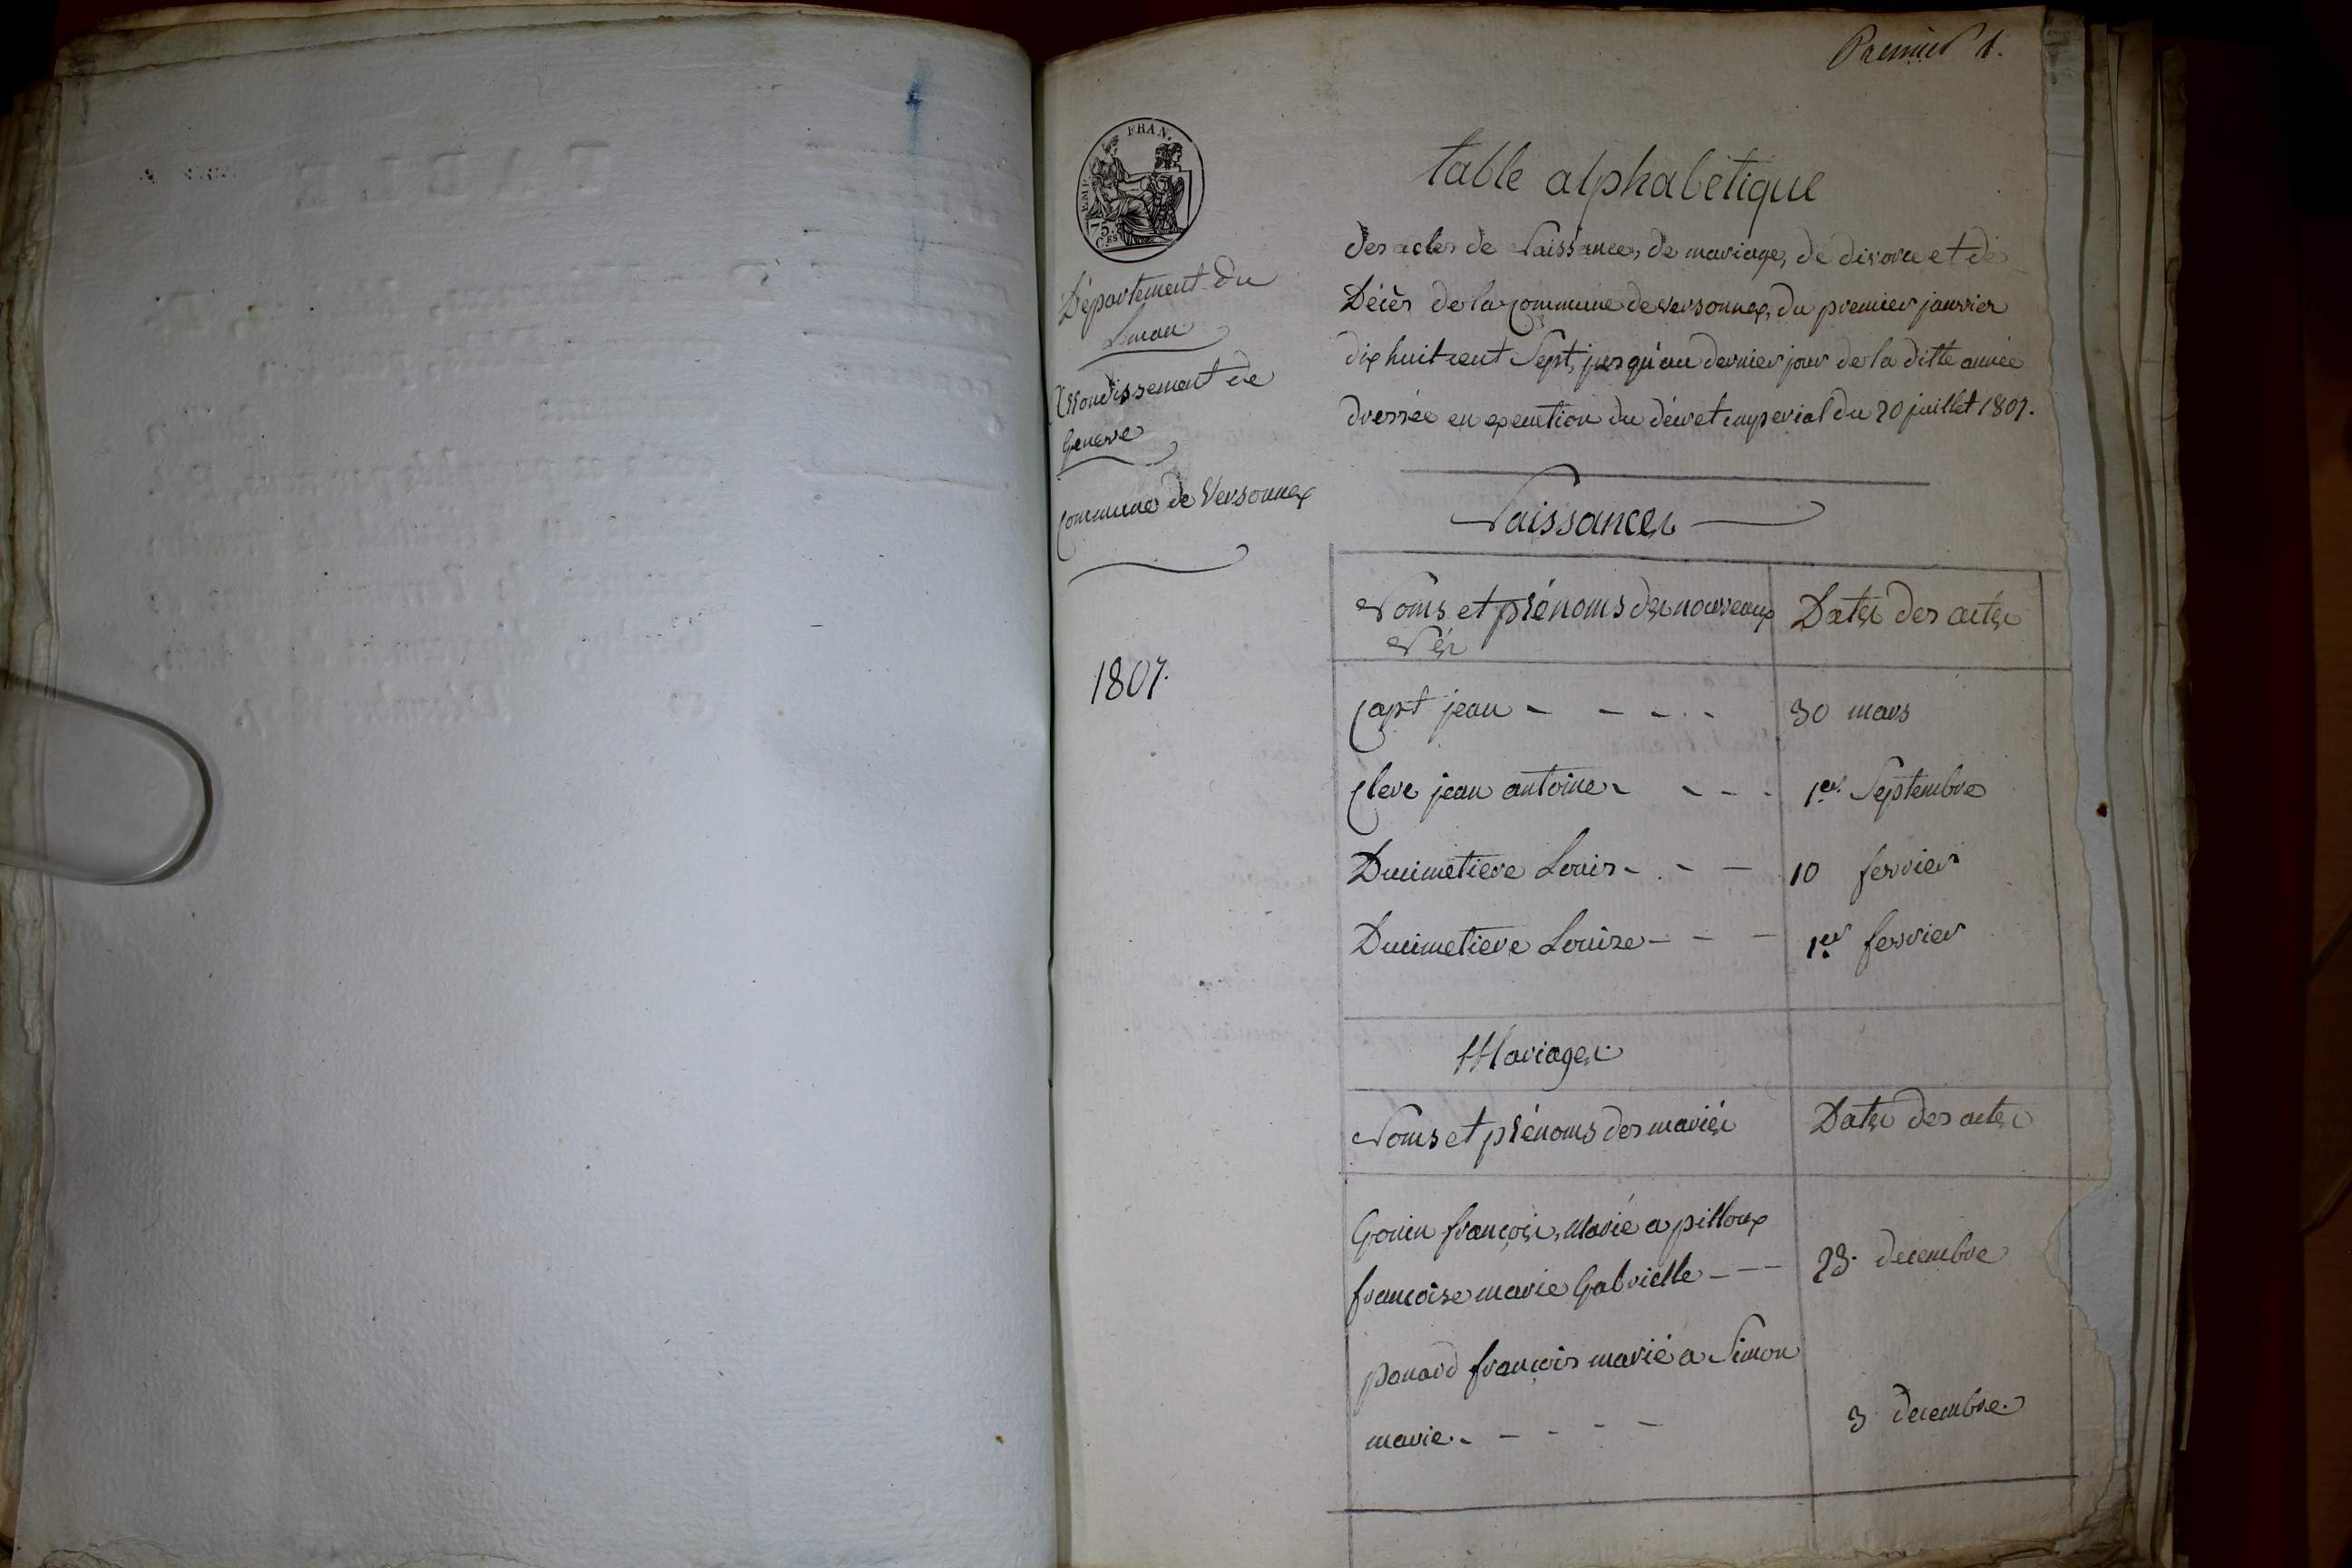 Premier 1.
EMP. FRAN.
75.
C.ES
Département du
Léman
Arrondissement de
Geneve
Commune de Versonnex
1807.
table alphabétique
des actes de Naissances, de mariages, de divorce et de
Décès de la Commune de Versonnex, du premier janvier
dix huit cent Sept, jusqu'au dernier jour de la ditte année
dressée en execution du décret imperial du 20 juillet 1807.
Naissances
Noms et prénoms des nouveaux Dates des actes
Nés
Capt jean - - - - - 30 mars
Cleve jean antoine - - - - 1er Septembre
Ducimetiere Louis - - - 10 fevrier
Ducimetiere Louise - - - 1er fevrier
Mariages
Noms et prénoms des mariés Dates des actes
Gonin françois, marié a pilloux
francoise marie Gabrielle - - - 23. decembre
panard françois marié a Simon
marie. - - - - - 3 decembre.